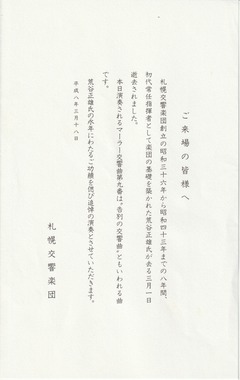 ご来場の皆様へ
札幌交響楽団創立の昭和三十六年から昭和四十三年までの八年間、
初代常任指揮者として楽団の基礎を築かれた荒谷正雄氏が去る三月一日
逝去されました。
本日演奏されるマーラー交響曲第九番は〝告別の交響曲〟ともいわれる曲
です。
荒谷正雄氏の永年にわたるご功績を偲び追悼の演奏とさせていただきます。
平成八年三月十八日
札幌交響楽団